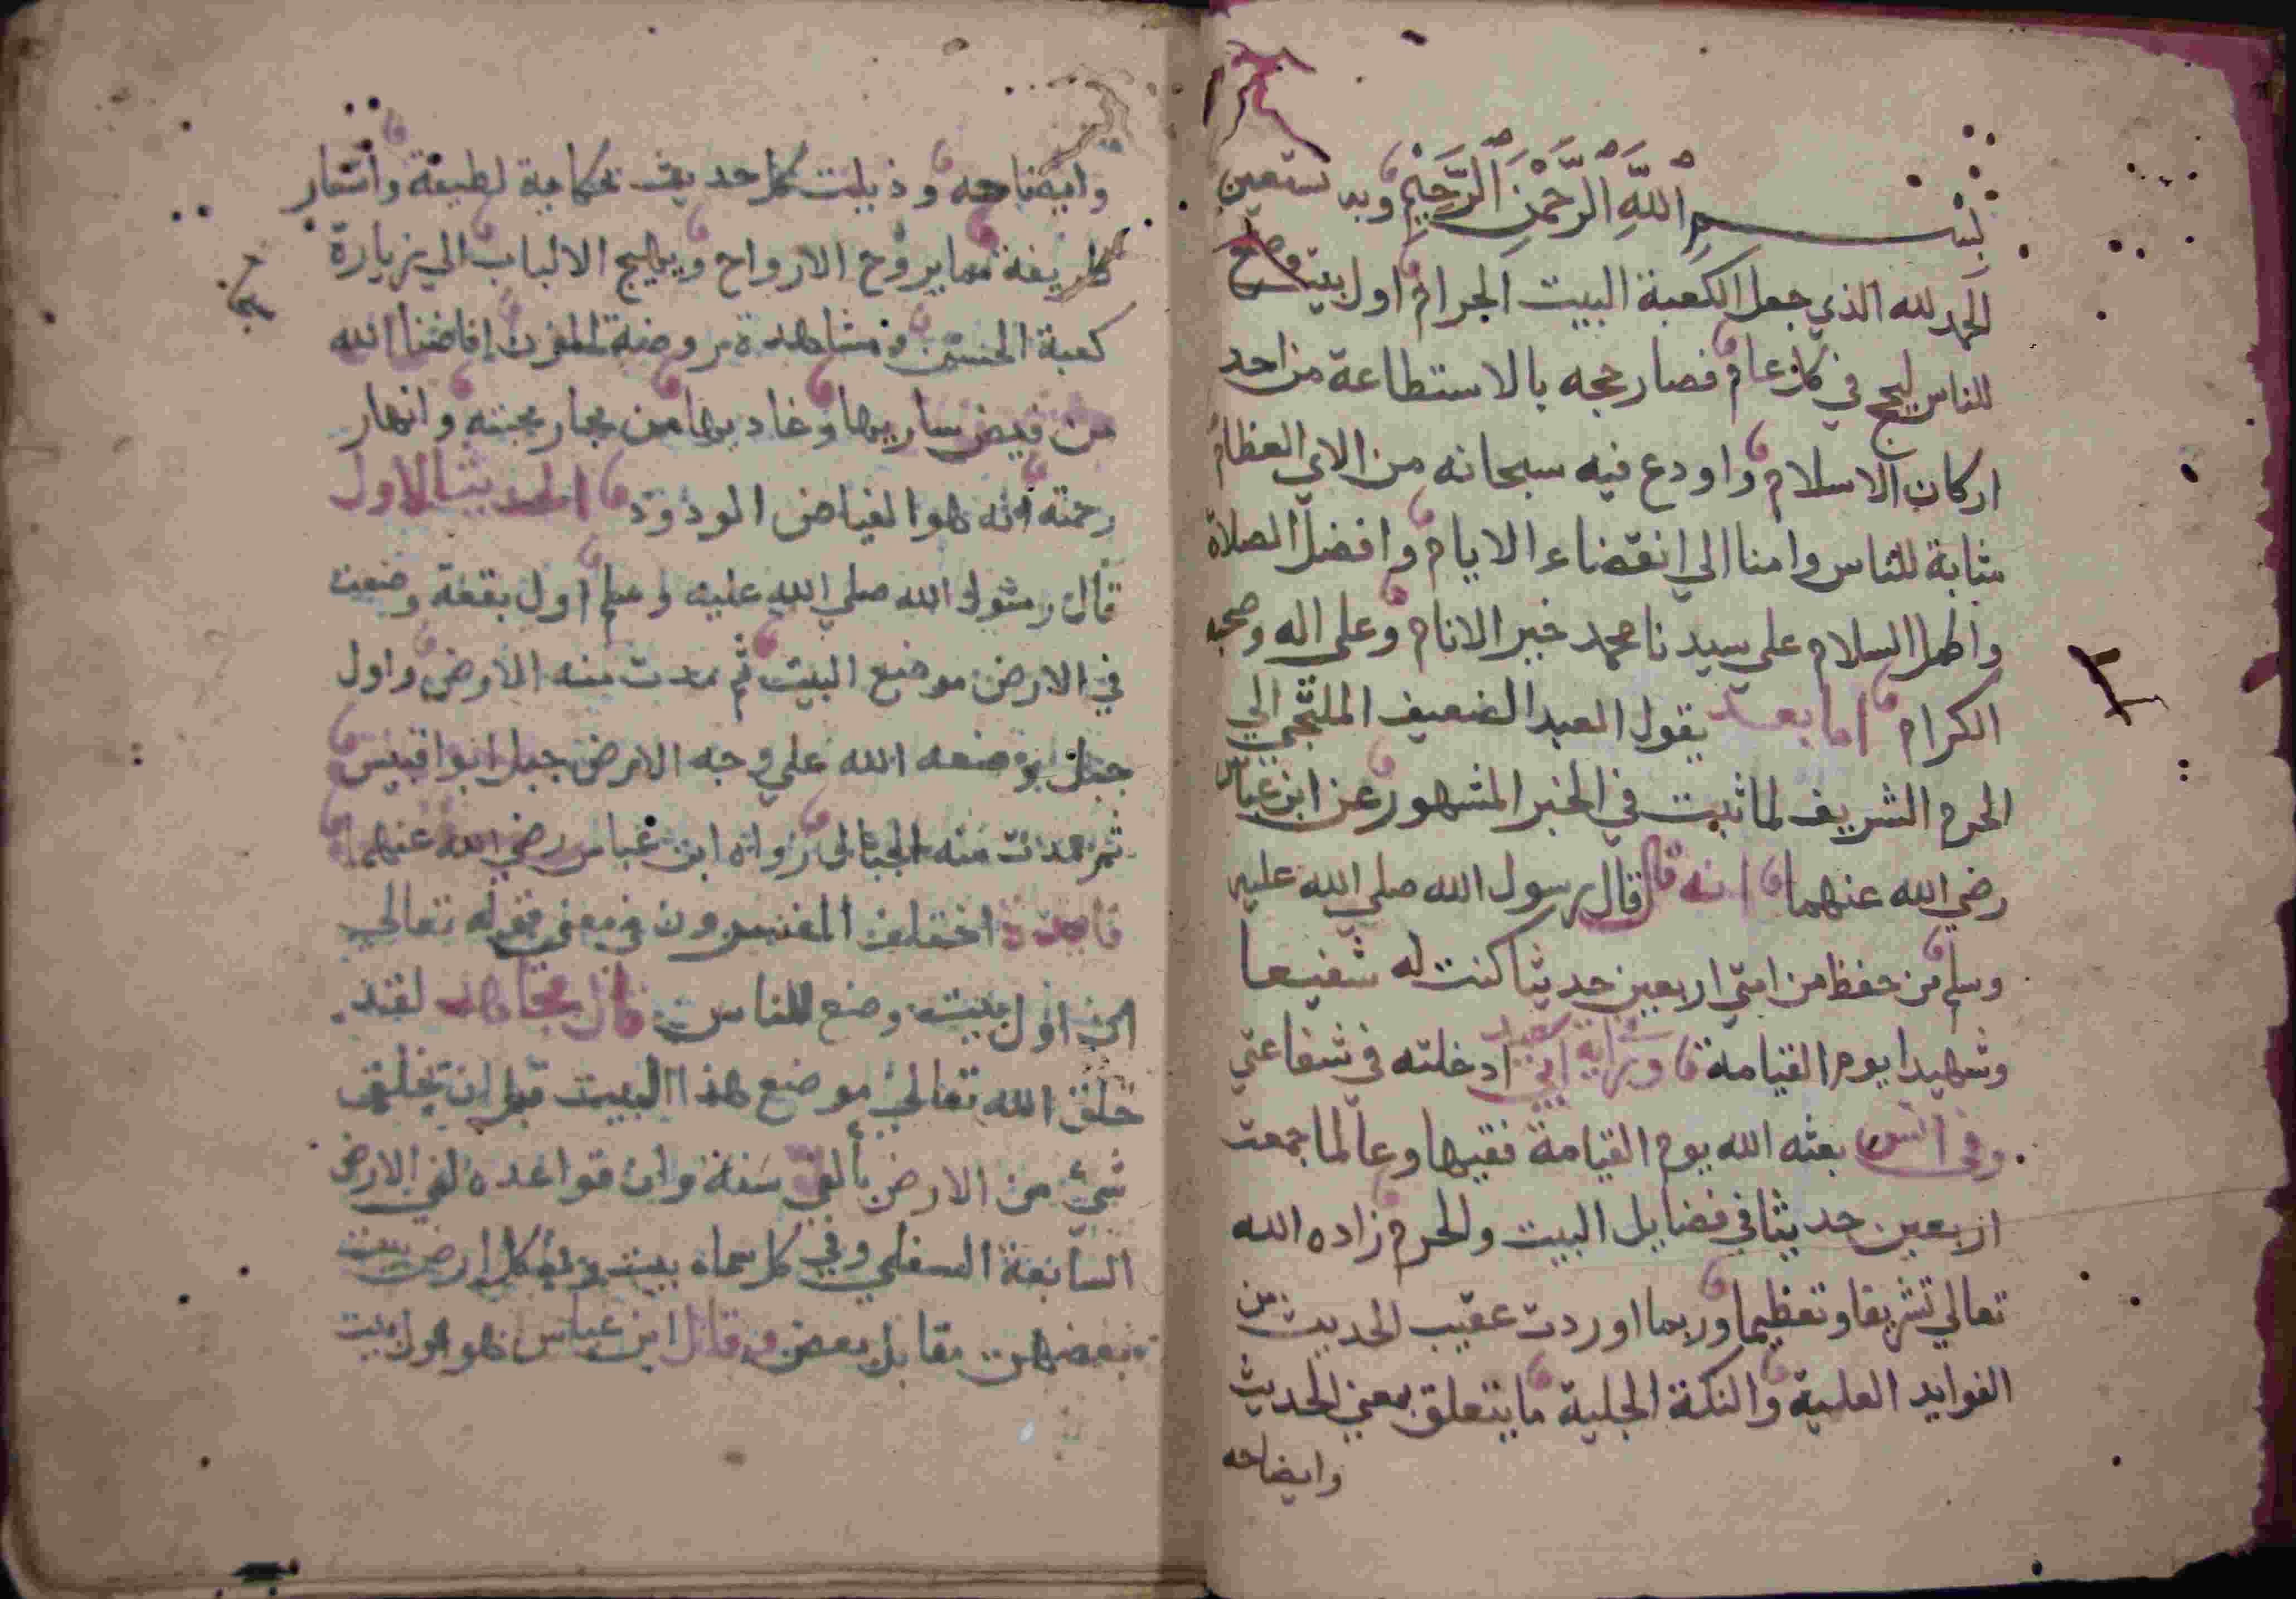 بسم اللهِ الرَّحْمٰنِ الرَّحِيْمِ وبه نستعين
الحمد لله الذي جعل الكعبة البيت الحرام اول بيت وضع
للناس ليحج في كل عام فصار حجه بالاستطاعة من احد
اركان الاسلام واودع فيه سبحانه من الاي العظام
مثابة للناس وامنا الي انقضاء الايام وافضل الصلاة
واكمل السلام علي سيدنا محمد خير الانام وعلى اله وصحبه
الكرام اما بعد يقول العبد الضعيف الملتجي الي
الحرم الشريف لما ثبت في الخبر المشهور عن ابن عباس
رضي الله عنهما انه قال قال رسول الله صلي الله عليه
وسلم من حفظ من امتي اربعين حديثا كنت له شفيعا
وشهيدا يوم القيامة وفي رواية ابي سعيد ادخلته في شفاعتي
وفي بعثه الله يوم القيامة فقيها وعالما جمعت
اربعين حديثا في فضايل البيت والحرم زاده الله
تعالي تشريفا وتعظيما وربما اوردت عقيب الحديث من
الفوايد العلمية والنكة الجلية ما يتعلق بمعني الحديث
وايضاحه
وايضاحه وذيلت كل حديث بحكاية لطيفة واشعار
ظريفة مما يروح الارواح ويهيج الالباب الي زيارة
كعبة الحسن ومشاهدة روضة افاضنا الله
من فيض ساريها وغاديها من بحار محبته وانهار
رحمته انه هو الفياض الودود الحديث الاول
قال رسول الله صلي الله عليه وسلم اول بقعة وضعت
في الارض موضع البيت ثم مدت منه الارض واول
جبل وضعه الله علي وجه الارض جبل ابوا قبيس
ثم مدت منه الجبال رواه ابن عباس رضي الله عنهما
فايدة اختلف المفسرون في معني قوله تعالي
ان اول بيت وضع للناس قال مجاهد لقد
خلق الله تعالي موضع هذا البيت قبل ان يخلق
شيء من الارض بألفي سَنة وان قواعده لفي الارض
السابعة السفلي وفي كل سماء بيت وفي كل ارض بيت
بعضهن مقابل بعض وقال ابن عباس هو اول بيت